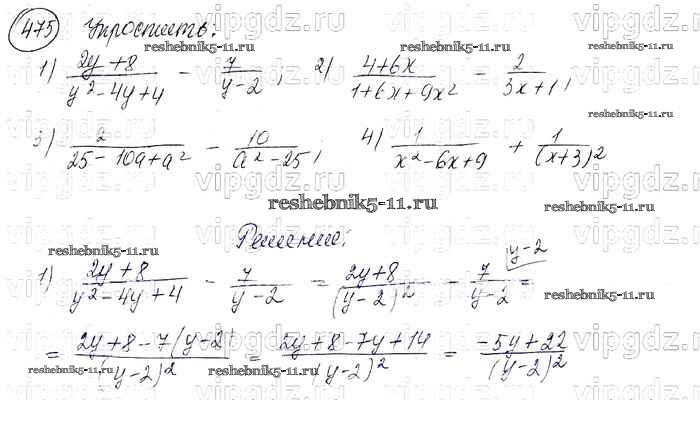 475 Упростить:
1) \frac{2y+8}{y^2-4y+4} - \frac{7}{y-2}; 2) \frac{4+6x}{1+6x+9x^2} - \frac{2}{3x+1};
3) \frac{2}{25-10a+a^2} - \frac{10}{a^2-25}; 4) \frac{1}{x^2-6x+9} + \frac{1}{(x+3)^2}
Решение:
1) \frac{2y+8}{y^2-4y+4} - \frac{7}{y-2} = \frac{2y+8}{(y-2)^2} - \frac{7}{y-2}^{|y-2} =
= \frac{2y+8-7(y-2)}{(y-2)^2} = \frac{2y+8-7y+14}{(y-2)^2} = \frac{-5y+22}{(y-2)^2}
vipgdz.ru
reshebnik5-11.ru